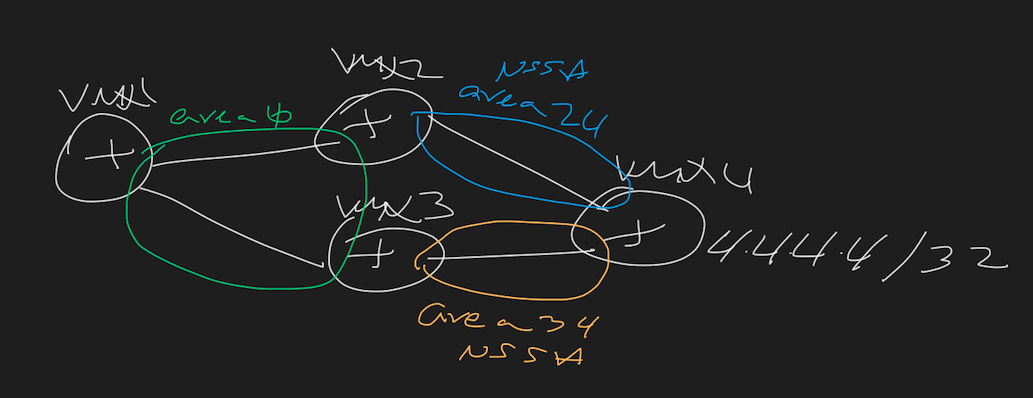 vmx1
area 0
vmx2
NSSA
area 24
vmx3
vmx4
4.4.4.4/32
area 34
NSSA